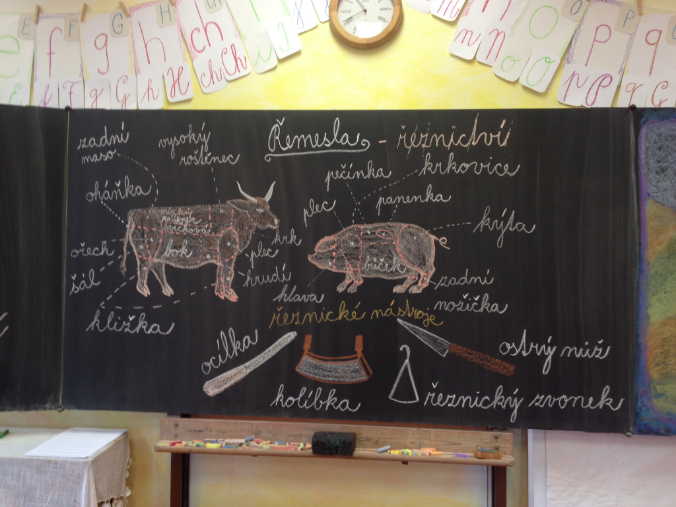 E F f G g H h CH ch
f F g G h H ch Ch
N O P
m n o p q
m n O p P q
Řemesla - řeznictví
zadní
maso
vysoký
roštěnec
oháňka
nízký
roštěnec
svíčková
bok
ořech
šál
kližka
plec
krk
hrudí
pečínka
krkovice
plec
panenka
kýta
bůček
hlava
zadní
nožička
řeznické nástroje
ocílka
kolíbka
ostrý nůž
řeznický zvonek